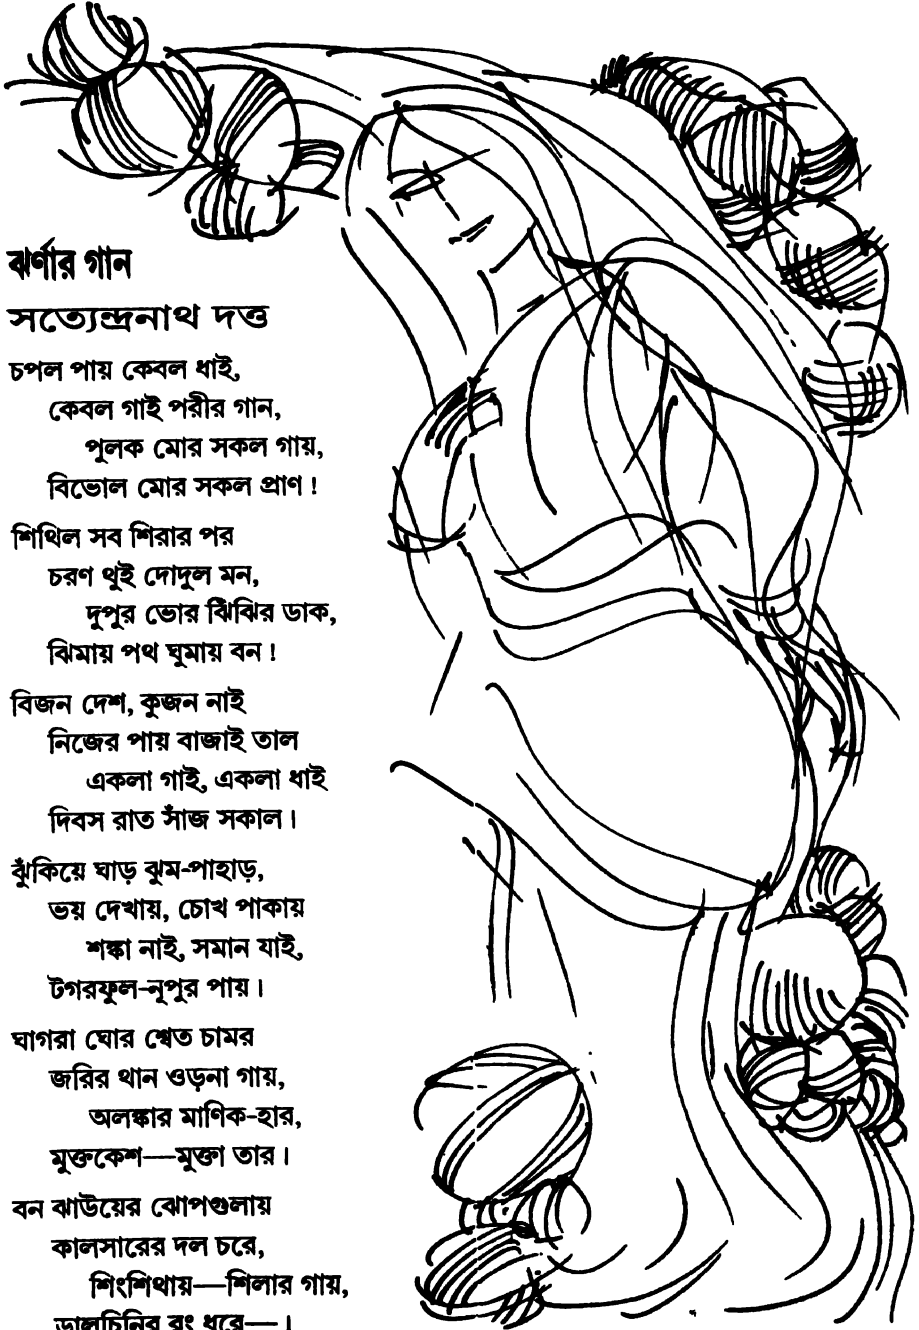 ঝর্ণার গান
সত্যেন্দ্রনাথ দত্ত
চপল পায় কেবল ধাই,
কেবল গাই পরীর গান,
পুলক মোর সকল গায়,
বিভোল মোর সকল প্রাণ !
শিথিল সব শিরার পর
চরণ থুই দোদুল মন,
দুপুর ভোর ঝিঁঝির ডাক,
ঝিমায় পথ ঘুমায় বন !
বিজন দেশ, কুজন নাই
নিজের পায় বাজাই তাল
একলা গাই, একলা ধাই
দিবস রাত সাঁজ সকাল।
ঝুঁকিয়ে ঘাড় ঝুম-পাহাড়,
ভয় দেখায়, চোখ পাকায়
শঙ্কা নাই, সমান যাই,
টগরফুল-নূপুর পায়।
ঘাগরা ঘোর শ্বেত চামর
জরির থান ওড়না গায়,
অলঙ্কার মাণিক-হার,
মুক্তকেশ—মুক্তা তার।
বন ঝাউয়ের ঝোপগুলায়
কালসারের দল চরে,
শিংশিথায়—শিলার গায়,
ডালচিনির রং ধরে—।